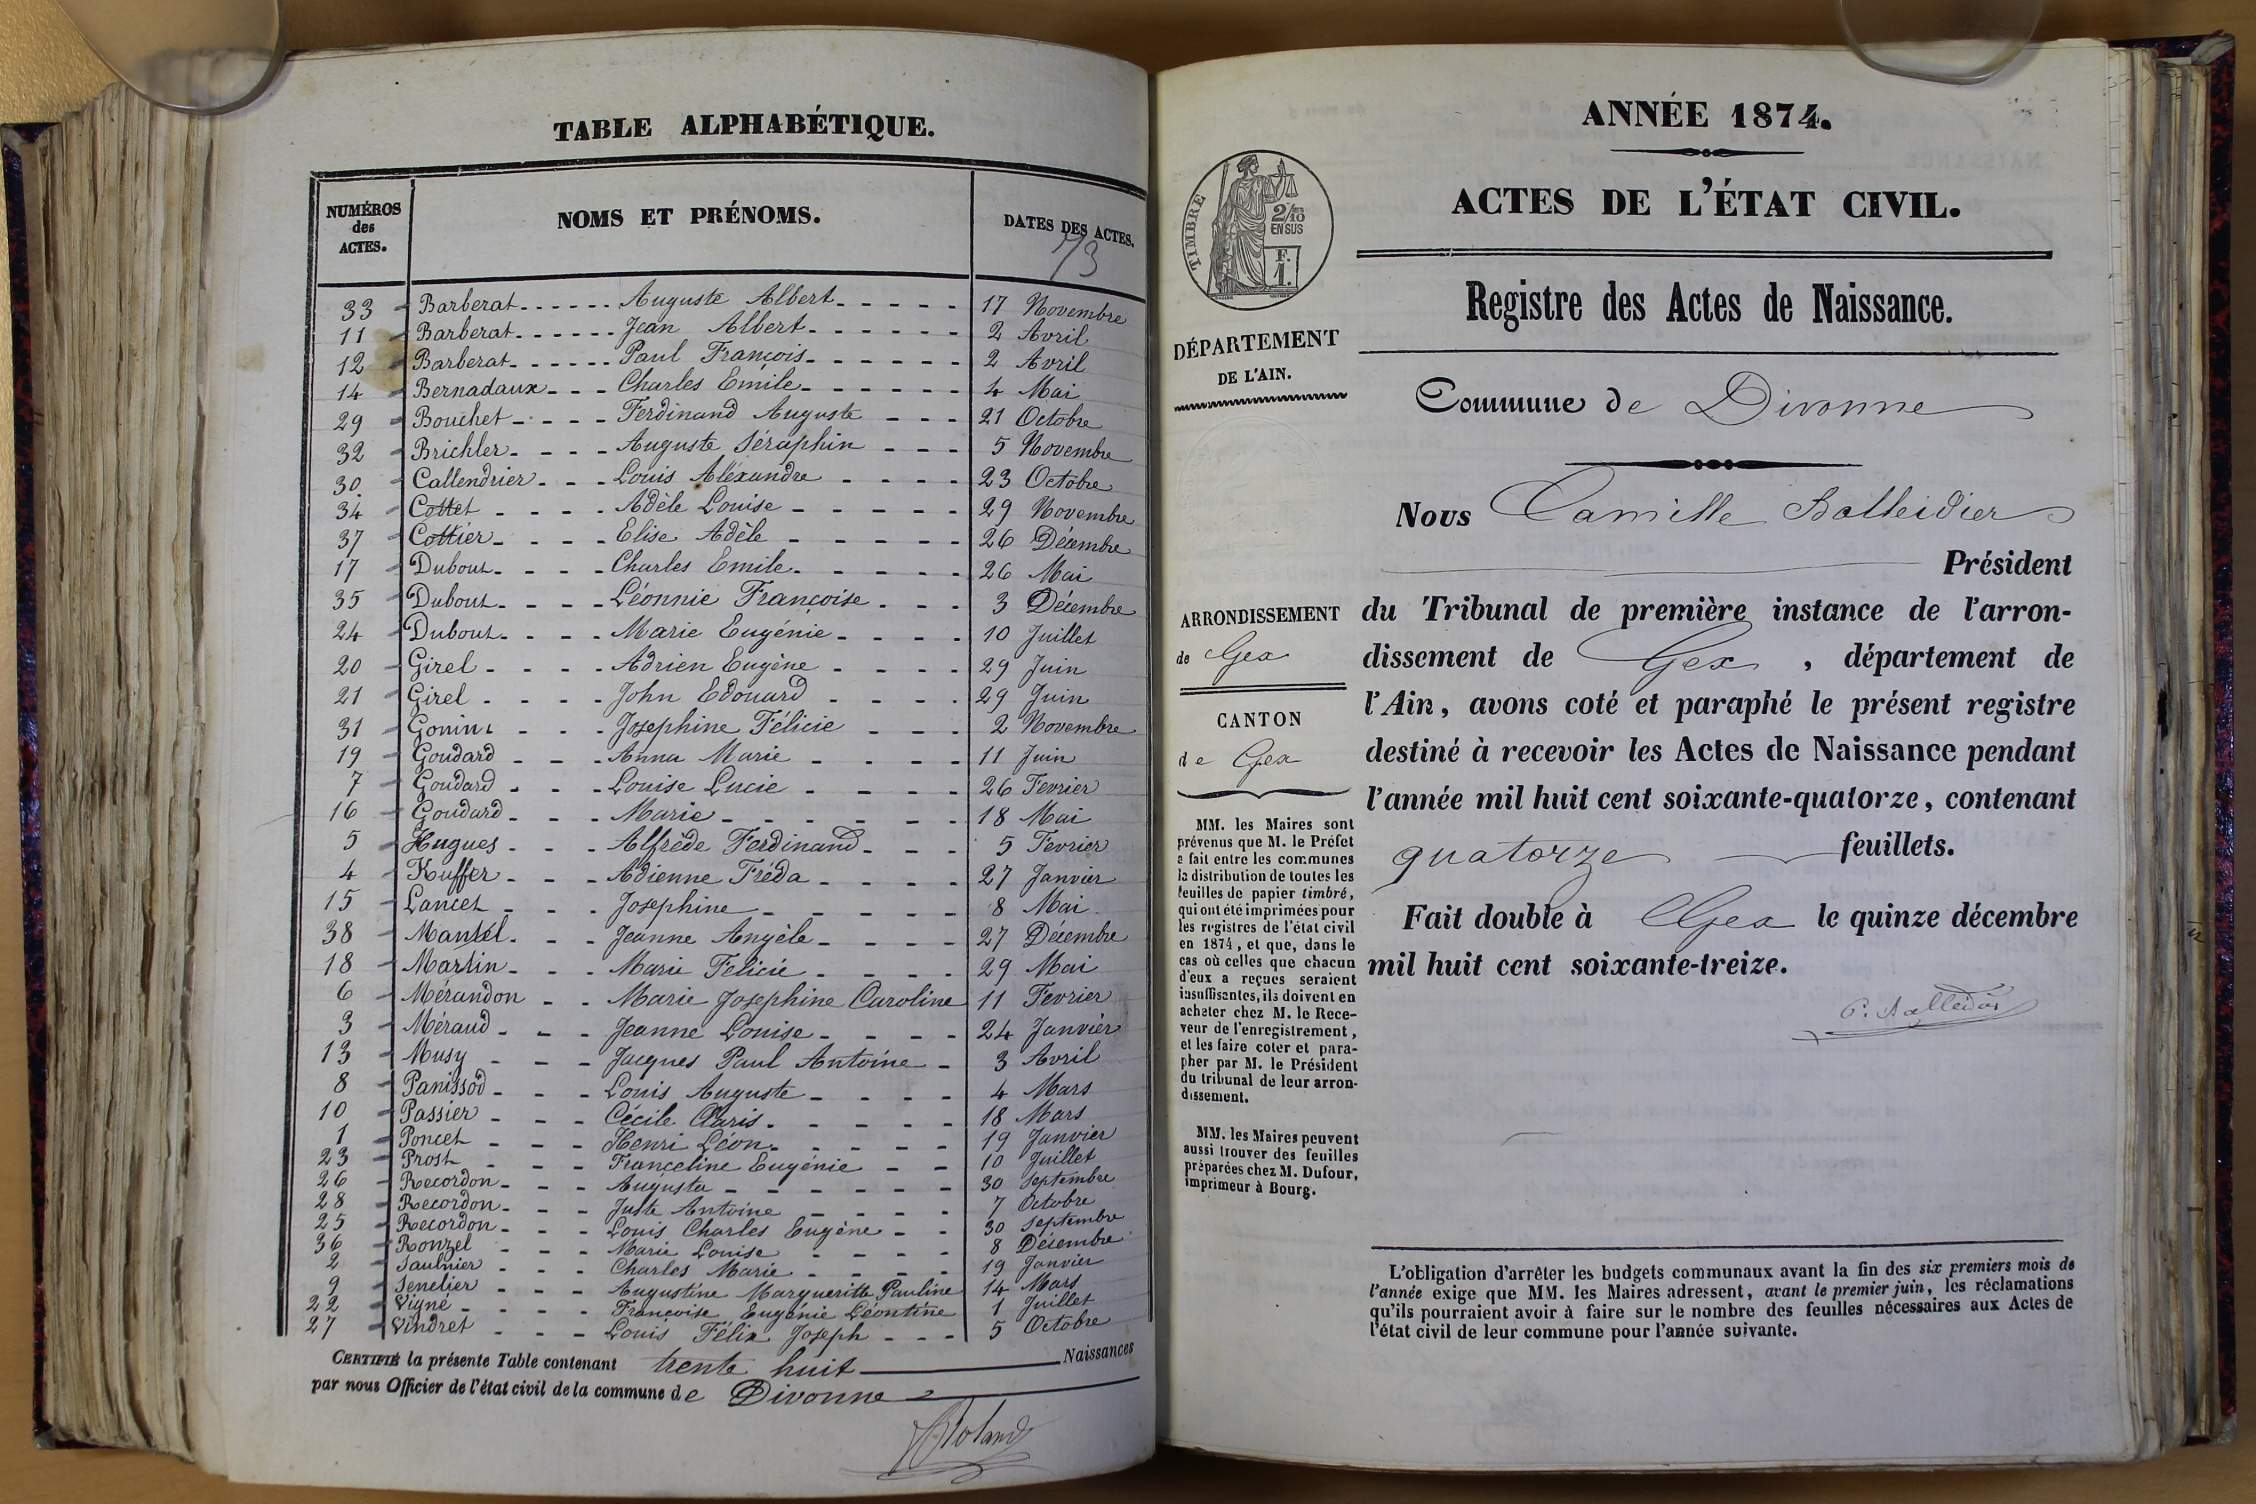 TABLE ALPHABÉTIQUE.
NUMÉROS des ACTES. NOMS ET PRÉNOMS. DATES DES ACTES.
73
33 Barberat Auguste Albert 17 Novembre
11 Barberat Jean Albert 2 Avril
12 Barberat Paul François 2 Avril
14 Bernadaux Charles Emile 4 Mai
29 Bouchet Ferdinand Auguste 21 Octobre
32 Brichler Auguste Séraphin 5 Novembre
30 Callendrier Louis Aléxandre 23 Octobre
34 Cottet Adèle Louise 29 Novembre
37 Cottier Elise Adèle 26 Décembre
17 Dubout Charles Emile 26 Mai
35 Dubout Léonnie Françoise 3 Décembre
24 Dubout Marie Eugénie 10 Juillet
20 Girel Adrien Eugène 29 Juin
21 Girel John Edouard 29 Juin
31 Gonin Josephine Félicie 2 Novembre
19 Goudard Anna Marie 11 Juin
7 Goudard Louise Lucie 26 Fevrier
16 Goudard Marie 18 Mai
5 Hugues Alfrède Ferdinand 5 Fevrier
4 Kuffer Adienne Fréda 27 Janvier
15 Lancet Josephine 8 Mai
38 Mantel Jeanne Angèle 27 Décembre
18 Martin Marie Félicié 29 Mai
6 Mérandon Marie Josephine Caroline 11 Fevrier
3 Méraud Jeanne Louise 24 Janvièr
13 Musy Jacques Paul Antoine 3 Avril
8 Panissod Louis Auguste 4 Mars
10 Passier Cécile Claris 18 Mars
1 Poncet Henri Léon 19 Janvier
23 Prost Franceline Eugénie 10 Juillet
26 Recordon Augusta 30 Septembre
28 Recordon Juste Antoine 7 Octobre
25 Recordon Louis Charles Eugène 30 Septembre
36 Ronzel Marie Louise 8 Décembre
2 Saulnier Charles Marie 19 Janvier
9 Senelier Augustine Margueritte Pauline 14 Mars
22 Vigne Françoise Eugénie Léontine 1 Juillet
27 Vindret Louis Félix Joseph 5 Octobre
CERTIFIÉ la présente Table contenant trente huit Naissances
par nous Officier de l'état civil de la commune de Divonne
Roland
ANNÉE 1874.
ACTES DE L'ÉTAT CIVIL.
TIMBRE
2/10
EN SUS
F.
1.
Registre des Actes de Naissance.
DÉPARTEMENT
DE L'AIN.
Commune de Divonne
Nous Camille Balleidier
Président
ARRONDISSEMENT
de Gex
CANTON
de Gex
du Tribunal de première instance de l'arron-
dissement de Gex, département de
l'Ain, avons coté et paraphé le présent registre
destiné à recevoir les Actes de Naissance pendant
l'année mil huit cent soixante-quatorze, contenant
quatorze feuillets.
Fait double à Gex le quinze décembre
mil huit cent soixante-treize.
C. Balleidier
MM. les Maires sont
prévenus que M. le Préfet
a fait entre les communes
la distribution de toutes les
feuilles de papier timbré,
qui ont été imprimées pour
les registres de l'état civil
en 1874, et que, dans le
cas où celles que chacun
d'eux a reçues seraient
insuffisantes, ils doivent en
acheter chez M. le Rece-
veur de l'enregistrement,
et les faire coter et para-
pher par M. le Président
du tribunal de leur arron-
dissement.
MM. les Maires peuvent
aussi trouver des feuilles
préparées chez M. Dufour,
imprimeur à Bourg.
L'obligation d'arrêter les budgets communaux avant la fin des six premiers mois de
l'année exige que MM. les Maires adressent, avant le premier juin, les réclamations
qu'ils pourraient avoir à faire sur le nombre des feuilles nécessaires aux Actes de
l'état civil de leur commune pour l'année suivante.